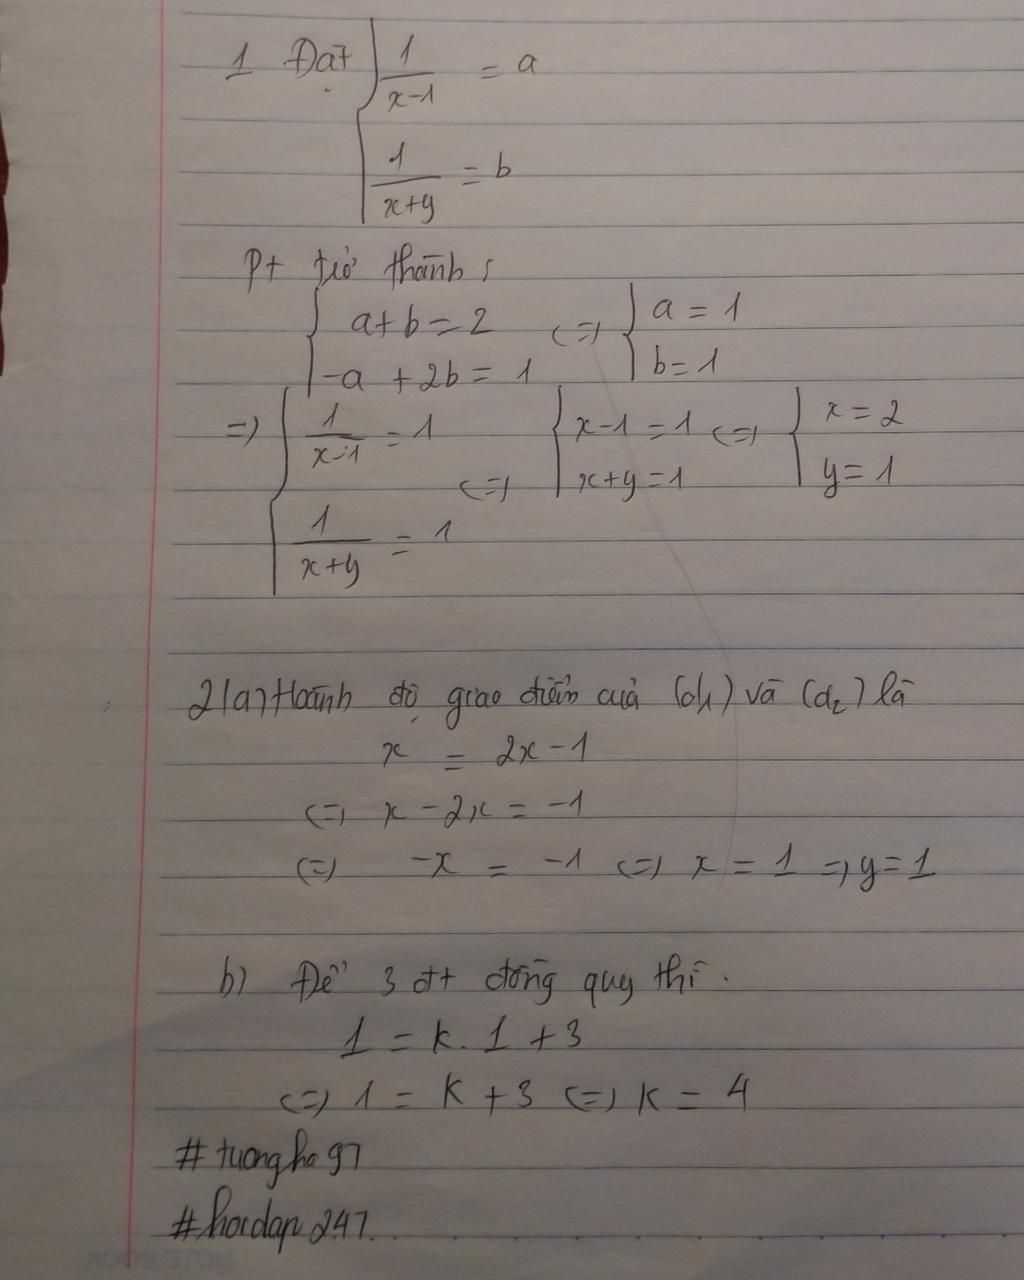 1 Đặt { 1/(x-1) = a
1/(x+y) = b
Pt trở thành :
{ a+b=2 <=> { a = 1
-a + 2b = 1 b=1
=> { 1/(x-1) = 1 <=> { x-1=1 <=> { x=2
1/(x+y) = 1 x+y=1 y=1
2(a) Hoành độ giao điểm của (d1) và (d2) là
x = 2x-1
<=> x-2x = -1
<=> -x = -1 <=> x = 1 => y=1
b) Để 3 đt đồng quy thì.
1 = k.1+3
<=> 1 = k+3 <=> k = 4
#tuongha97
#hoidap247.